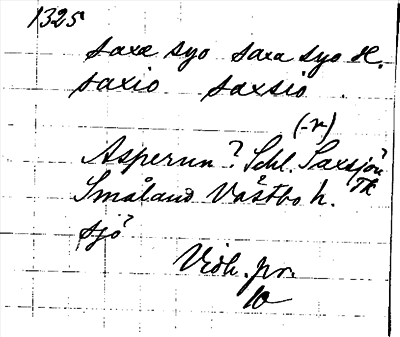 1325
saxæ syo saxa syo H.
saxio saxsio
(-r)
Asperun? Schl. Saxsjön
TK
Småland Västbo h.
sjö
Vidh. pr.
10